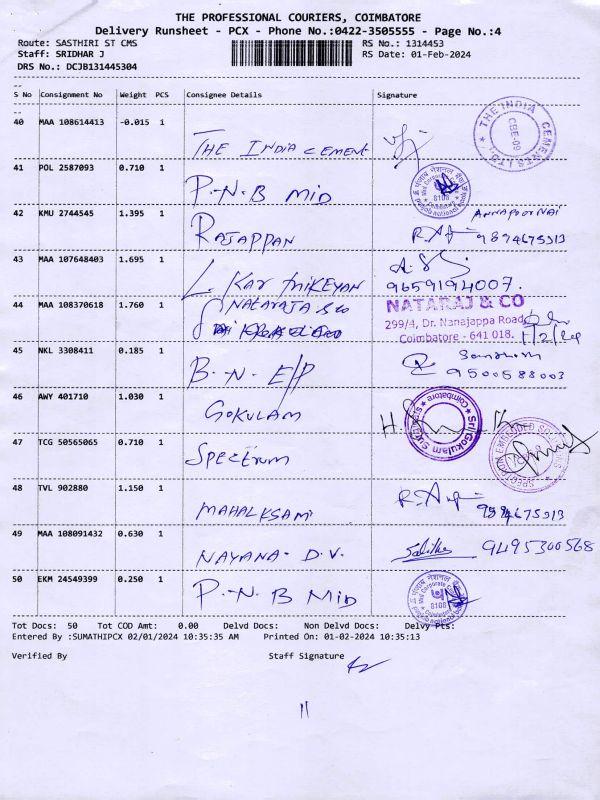 THE PROFESSIONAL COURIERS, COIMBATORE
Delivery Runsheet - PCX - Phone No.:0422-3505555 - Page No.:4
Route: SASTHIRI ST CMS
RS No.: 1314453
Staff: SRIDHAR J
RS Date: 01-Feb-2024
DRS No.: DCJB131445304
S No Consignment No Weight PCS Consignee Details Signature
40 MAA 108614413 -0.015 1
THE INDIA CEMENT
THE INDIA CEMENTS LTD
CBE-09
41 POL 2587093 0.710 1
P-N-B MID
8108
42 KMU 2744545 1.395 1
RAJAPPAN
ANNAPOORNAI
9894675313
43 MAA 107648403 1.695 1
L. KARTHIKEYAN
9659194007.
44 MAA 108370618 1.760 1
NATARAJA & CO
NATARAJ & CO
299/4, Dr. Nanajappa Road
Coimbatore - 641 018.
1/2/24
45 NKL 3308411 0.185 1
B-N-E/P
9500588003
46 AWY 401710 1.030 1
GOKULAM
Sri Gokulam
Coimbatore
47 TCG 50565065 0.710 1
SPECTRUM
48 TVL 902880 1.150 1
MAHALKSAMI
9894675313
49 MAA 108091432 0.630 1
NAYANA- D.V.
9495300568
50 EKM 24549399 0.250 1
P-N-B MID
8108
Tot Docs: 50 Tot COD Amt: 0.00 Delvd Docs: Non Delvd Docs: Delvy Pts:
Entered By :SUMATHIPCX 02/01/2024 10:35:35 AM Printed On: 01-02-2024 10:35:13
Verified By Staff Signature